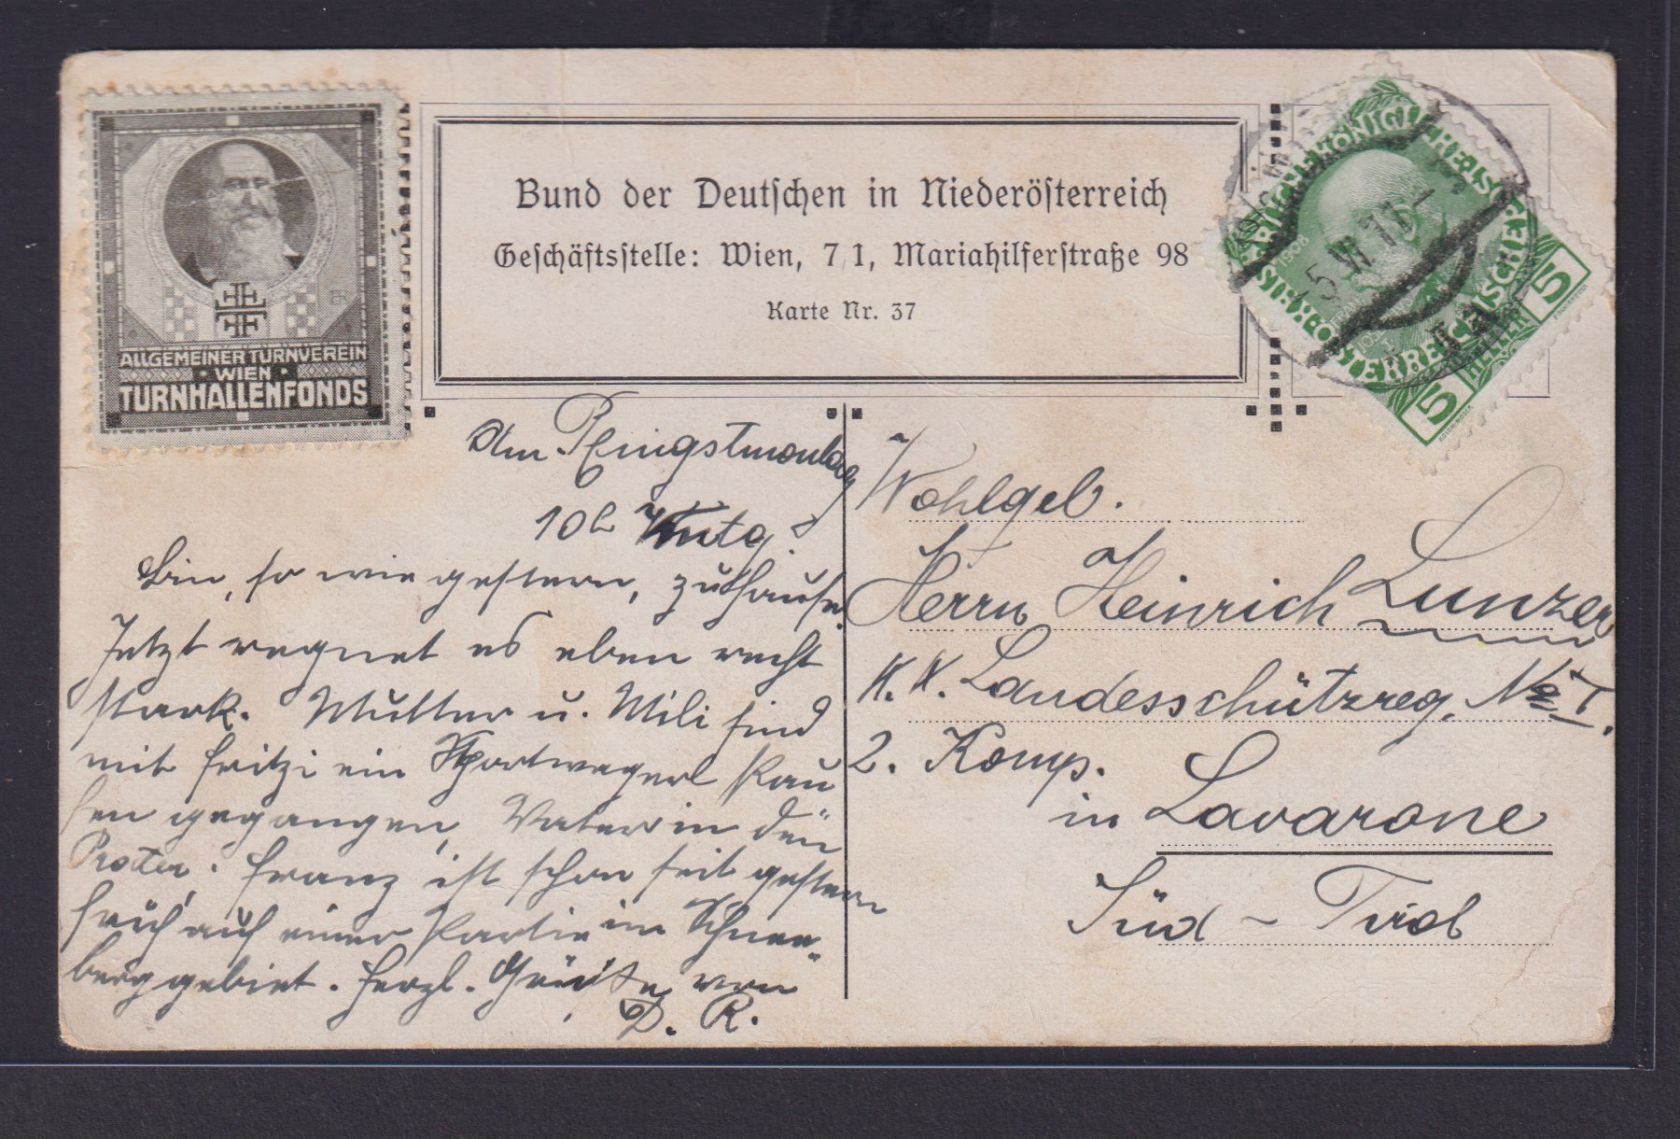 ALLGEMEINER TURNVEREIN
· WIEN ·
TURNHALLENFONDS
Bund der Deutschen in Niederösterreich
Geschäftsstelle: Wien, 7/1, Mariahilferstraße 98
Karte Nr. 37
KAISERLICHE KÖNIGLICHE ÖSTERREICHISCHE POST
1908
5 HELLER 5
5 VI 11
Am Pfingstmontag
10h
Bin, so wie gestern, zuhause.
Jetzt regnet es eben recht
stark. Mutter u. Mili sind
mit Fritzi ein Sportwagerl kau
fen gegangen, Vater in den
Prater. Franz ist schon seit gestern
früh auf einer Partie im Schnee-
berggebiet. Herzl. Grüße von
D. R.
Wohlgeb.
Herrn Heinrich Lunzer
K. K. Landesschützreg. No I.
2. Komp.
in Lavarone
Süd - Tirol